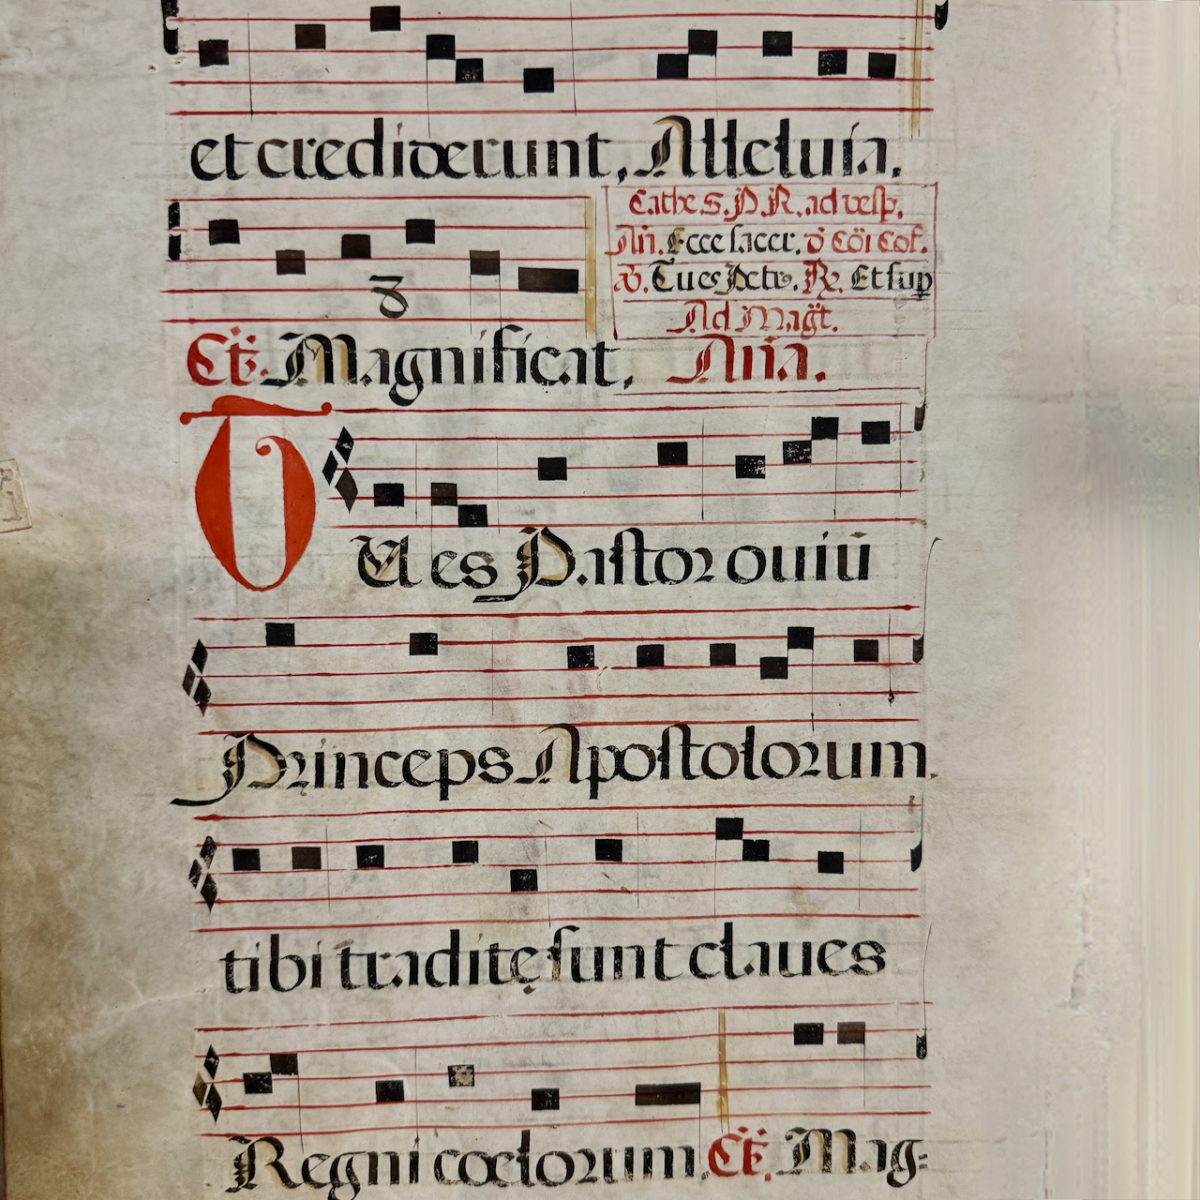 et crediderunt, Alleluia.
Cathe. S. P. R. ad vesp.
Añ. Ecce sacer. đ Cōi Cof.
℣. Tu es Petr9. ℟. Et sup
Ad Mag̃t.
Ct̃. Magnificat, Aña.
8
TU es Pastor ouiū
Princeps Apostolorum.
tibi traditę sunt claues
Regni cœlorum, Ct̃. Mag-